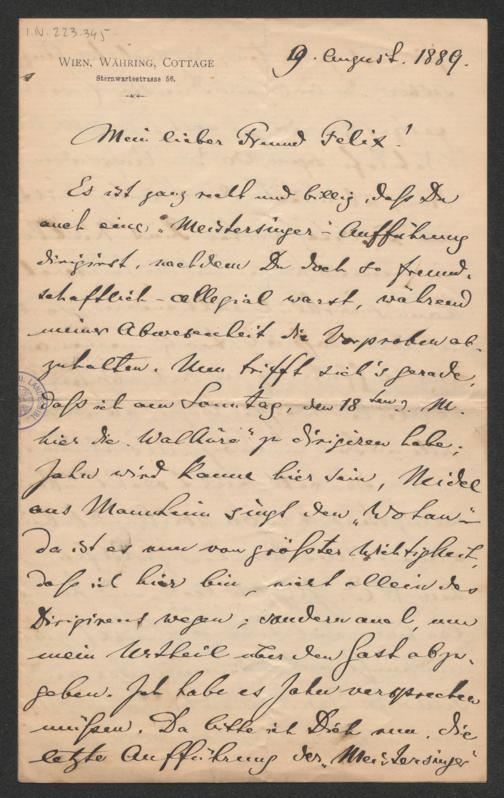 I.N. 223.345
WIEN, WÄHRING, COTTAGE
Sternwartestrasse 56.
9. August. 1889.
Mein lieber Freund Felix!
Es ist ganz recht und billig, daß Du
auch eine „Meistersinger"-Aufführung
dirigirst, nachdem Du doch so freund-
schaftlich-collegial warst, während
meiner Abwesenheit die Vorproben ab-
zuhalten. Nun trifft sich's gerade,
daß ich am Sonntag, den 18ten d. M.
hier die „Walküre" zu dirigiren habe;
Jahn wird kaum hier sein, Neidl
aus Mannheim singt den „Wotan" –
da ist es nun von größter Wichtigkeit,
daß ich hier bin, nicht allein des
Dirigirens wegen, sondern auch, um
mein Urtheil über den Gast abzu-
geben. Ich habe es Jahn versprechen
müßen. Da bitte ich Dich nun, die
letzte Aufführung der „Meistersinger"